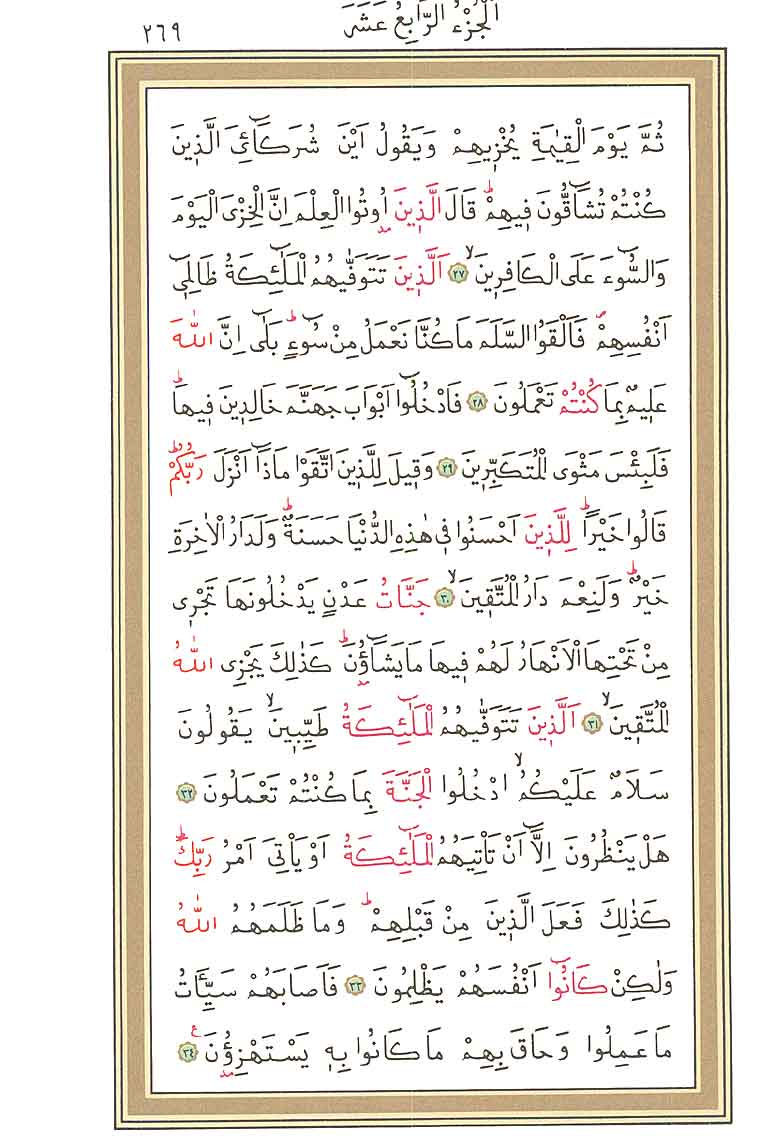 اَلْجُزْءُ الرَّابِعُ عَشَرَ
٢٦٩
ثُمَّ يَوْمَ الْقِيٰمَةِ يُخْزٖيهِمْ وَيَقُولُ اَيْنَ شُرَكَٓائِيَ الَّذٖينَ
كُنْتُمْ تُشَٓاقُّونَ فٖيهِمْؕ قَالَ الَّذٖينَ اُو۫تُوا الْعِلْمَ اِنَّ الْخِزْيَ الْيَوْمَ
وَالسُّٓوءَ عَلَى الْكَافِرٖينَۙ ﴿٢٧﴾ اَلَّذٖينَ تَتَوَفّٰيهُمُ الْمَلٰٓئِكَةُ ظَالِمٖٓي
اَنْفُسِهِمْࣕ فَاَلْقَوُا السَّلَمَ مَا كُنَّا نَعْمَلُ مِنْ سُٓوءٍؕ بَلٰٓى اِنَّ اللّٰهَ
عَلٖيمٌ بِمَا كُنْتُمْ تَعْمَلُونَ ﴿٢٨﴾ فَادْخُلُٓوا اَبْوَابَ جَهَنَّمَ خَالِدٖينَ فٖيهَاؕ
فَلَبِئْسَ مَثْوَى الْمُتَكَبِّرٖينَ ﴿٢٩﴾ وَقٖيلَ لِلَّذٖينَ اتَّقَوْا مَاذَٓا اَنْزَلَ رَبُّكُمْؕ
قَالُوا خَيْرًاؕ لِلَّذٖينَ اَحْسَنُوا فٖي هٰذِهِ الدُّنْيَا حَسَنَةٌؕ وَلَدَارُ الْاٰخِرَةِ
خَيْرٌؕ وَلَنِعْمَ دَارُ الْمُتَّقٖينَۙ ﴿٣٠﴾ جَنَّاتُ عَدْنٍ يَدْخُلُونَهَا تَجْرٖي
مِنْ تَحْتِهَا الْاَنْهَارُ لَهُمْ فٖيهَا مَا يَشَٓاؤُ۫نَؕ كَذٰلِكَ يَجْزِي اللّٰهُ
الْمُتَّقٖينَۙ ﴿٣١﴾ اَلَّذٖينَ تَتَوَفّٰيهُمُ الْمَلٰٓئِكَةُ طَيِّبٖينَۙ يَقُولُونَ
سَلَامٌ عَلَيْكُمُۙ ادْخُلُوا الْجَنَّةَ بِمَا كُنْتُمْ تَعْمَلُونَ ﴿٣٢﴾
هَلْ يَنْظُرُونَ اِلَّٓا اَنْ تَاْتِيَهُمُ الْمَلٰٓئِكَةُ اَوْ يَاْتِيَ اَمْرُ رَبِّكَؕ
كَذٰلِكَ فَعَلَ الَّذٖينَ مِنْ قَبْلِهِمْؕ وَمَا ظَلَمَهُمُ اللّٰهُ
وَلٰكِنْ كَانُٓوا اَنْفُسَهُمْ يَظْلِمُونَ ﴿٣٣﴾ فَاَصَابَهُمْ سَيِّـَٔاتُ
مَا عَمِلُوا وَحَاقَ بِهِمْ مَا كَانُوا بِهٖ يَسْتَهْزِؤُ۫نَࣖ ﴿٣٤﴾